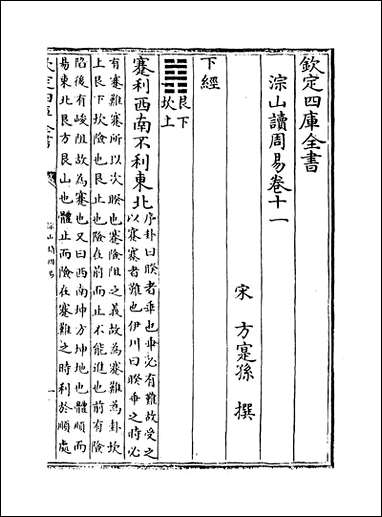 欽定四庫全書
淙山讀周易卷十一
宋 方寔孫 撰
下經
艮下
坎上
蹇利西南不利東北
序卦曰睽者乖也乖必有難故受之
以蹇蹇者難也伊川曰睽乖之時必
有蹇難蹇所以次睽也蹇險阻之義故為蹇難為卦坎
上艮下坎險也艮止也險在前而止不能進也前有險
陷後有峻阻故為蹇也又曰西南坤方坤地也體順而
易東北艮方艮山也體止而險在蹇難之時利於順處